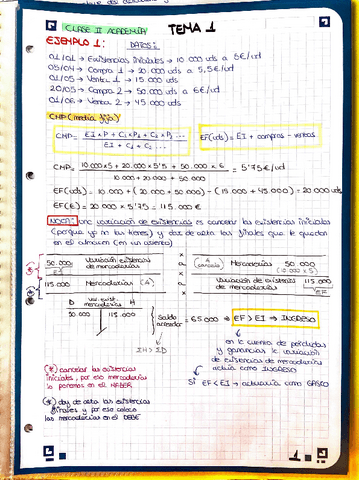 CLASE II ACADEMIA TEMA 1
EJEMPLO 1: DATOS:
01/01 → Existencias iniciales → 10.000 uds a 5€/ud
05/04 → Compra 1 → 20.000 uds a 5,5€/ud
01/05 → Venta 1 → 15.000 uds
20/05 → Compra 2 → 50.000 uds a 6€/ud
01/06 → Venta 2 → 45.000 uds
CMP (media fija)
CMP = EI x P + C1 x P1 + C2 x P2 ...
EI + C1 + C2 ...
EF(uds) = EI + compras - ventas
CMP = 10.000 x 5 + 20.000 x 5'5 + 50.000 x 6 = 5'75€/ud
10.000 + 20.000 + 50.000
EF(uds) = 10.000 + (20.000 + 50.000) - (15.000 + 45.000) = 20.000 uds
EF(€) = 20.000 x 5'75 = 115.000€
NOTA: una variación de existencias es cancelar las existencias iniciales
(porque ya no las tienes) y dar de alta las finales que te quedan
en el almacen (en un asiento)
50.000 Variación existencias de mercaderías
EI
(cancela) Mercaderías 50.000
(10.000 x 5)
115.000 Mercaderías (4) a Variación de existencias de mercaderías 115.000
EF
D var. exist. mercaderías H
50.000 115.000
Saldo acreedor = 65.000 ⇒ EF > EI → INGRESO
ΣH > ΣD
en la cuenta de perdidas
y ganancias la variación
de existencias de mercaderías
actúa como INGRESO
Si EF < EI → actuaría como GASTO
(*) cancelar las existencias
iniciales, por eso mercaderías
lo ponemos en el HABER
(*) doy de alta las existencias
finales y por eso coloco
las mercaderías en el DEBE